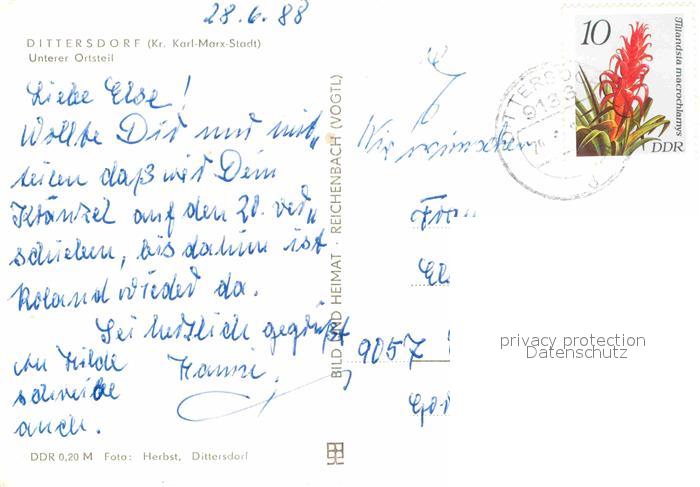 28.6.88
DITTERSDORF (Kr. Karl-Marx-Stadt)
Unterer Ortsteil
Liebe Else!
Wollte Dir nur mit„
teilen daß wir Dein
Kränzel auf den 20. ver„
schieben, bis dahin ist
Roland wieder da.
Sei herzlich gegrüßt
An Hilde Hanni.
schreibe
auch.
DDR 0,20 M Foto: Herbst, Dittersdorf
BILD UND HEIMAT · REICHENBACH (VOGTL)
Wir wünschen
Frau
9057
10
Tillandsia macrochlamys
DDR
DITTERSDO
privacy protection
Datenschutz